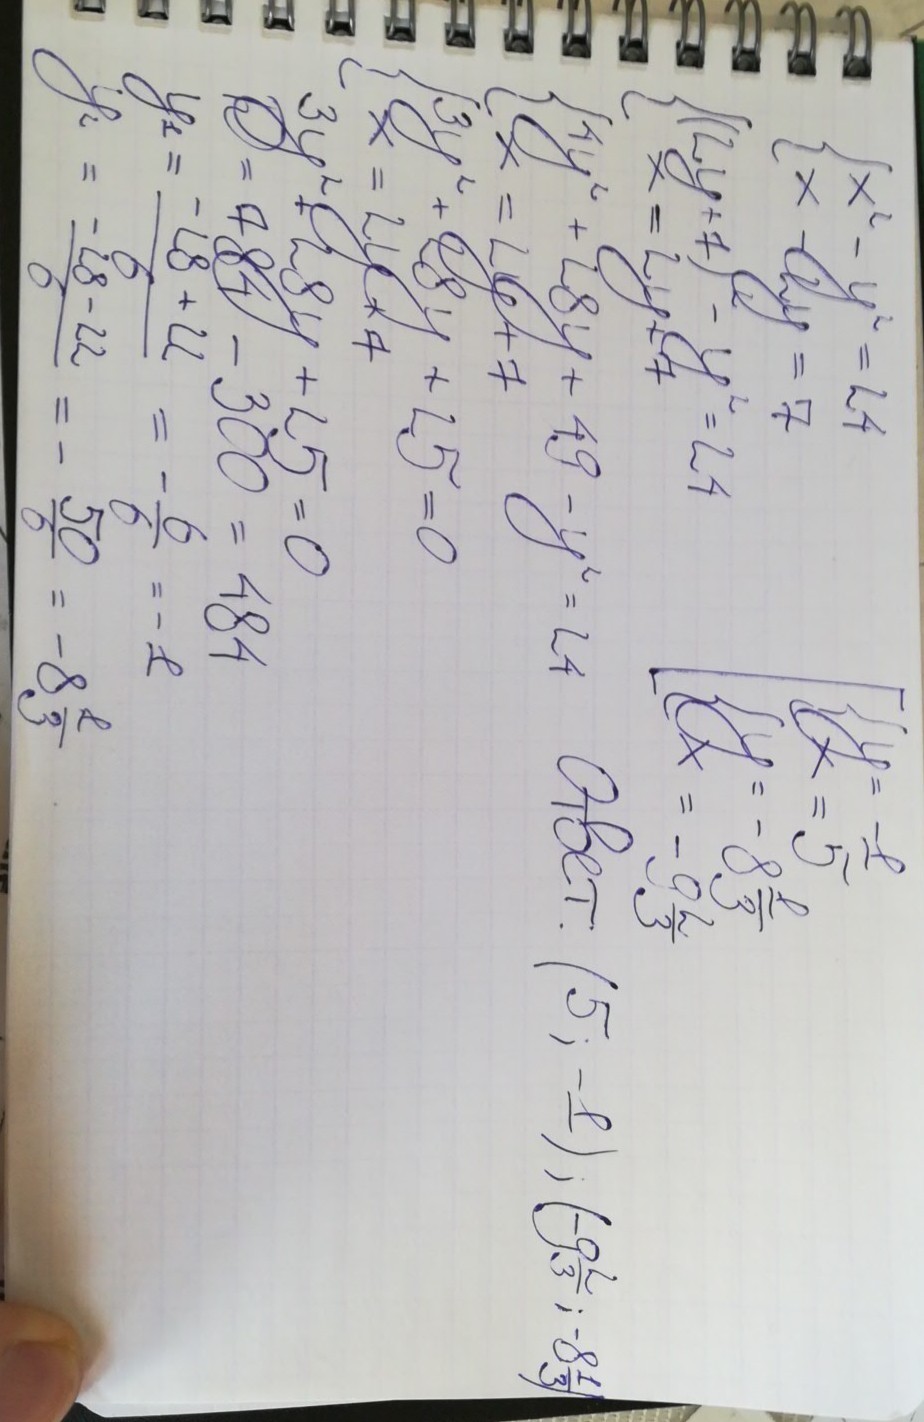 {x² - y² = 24
{x - 2y = 7
{(2y+7)² - y² = 24
{x = 2y+7
{4y² + 28y + 49 - y² = 24
{x = 2y+7
{3y² + 28y + 25 = 0
{x = 2y+7
3y² + 28y + 25 = 0
D = 784 - 300 = 484
y₁ = (-28 + 22)/6 = -6/6 = -1
y₂ = (-28 - 22)/6 = -50/6 = -8 1/3
[{y = -1
{x = 5
{y = -8 1/3
{x = -9 2/3
Ответ: (5; -1); (-9 2/3; -8 1/3)